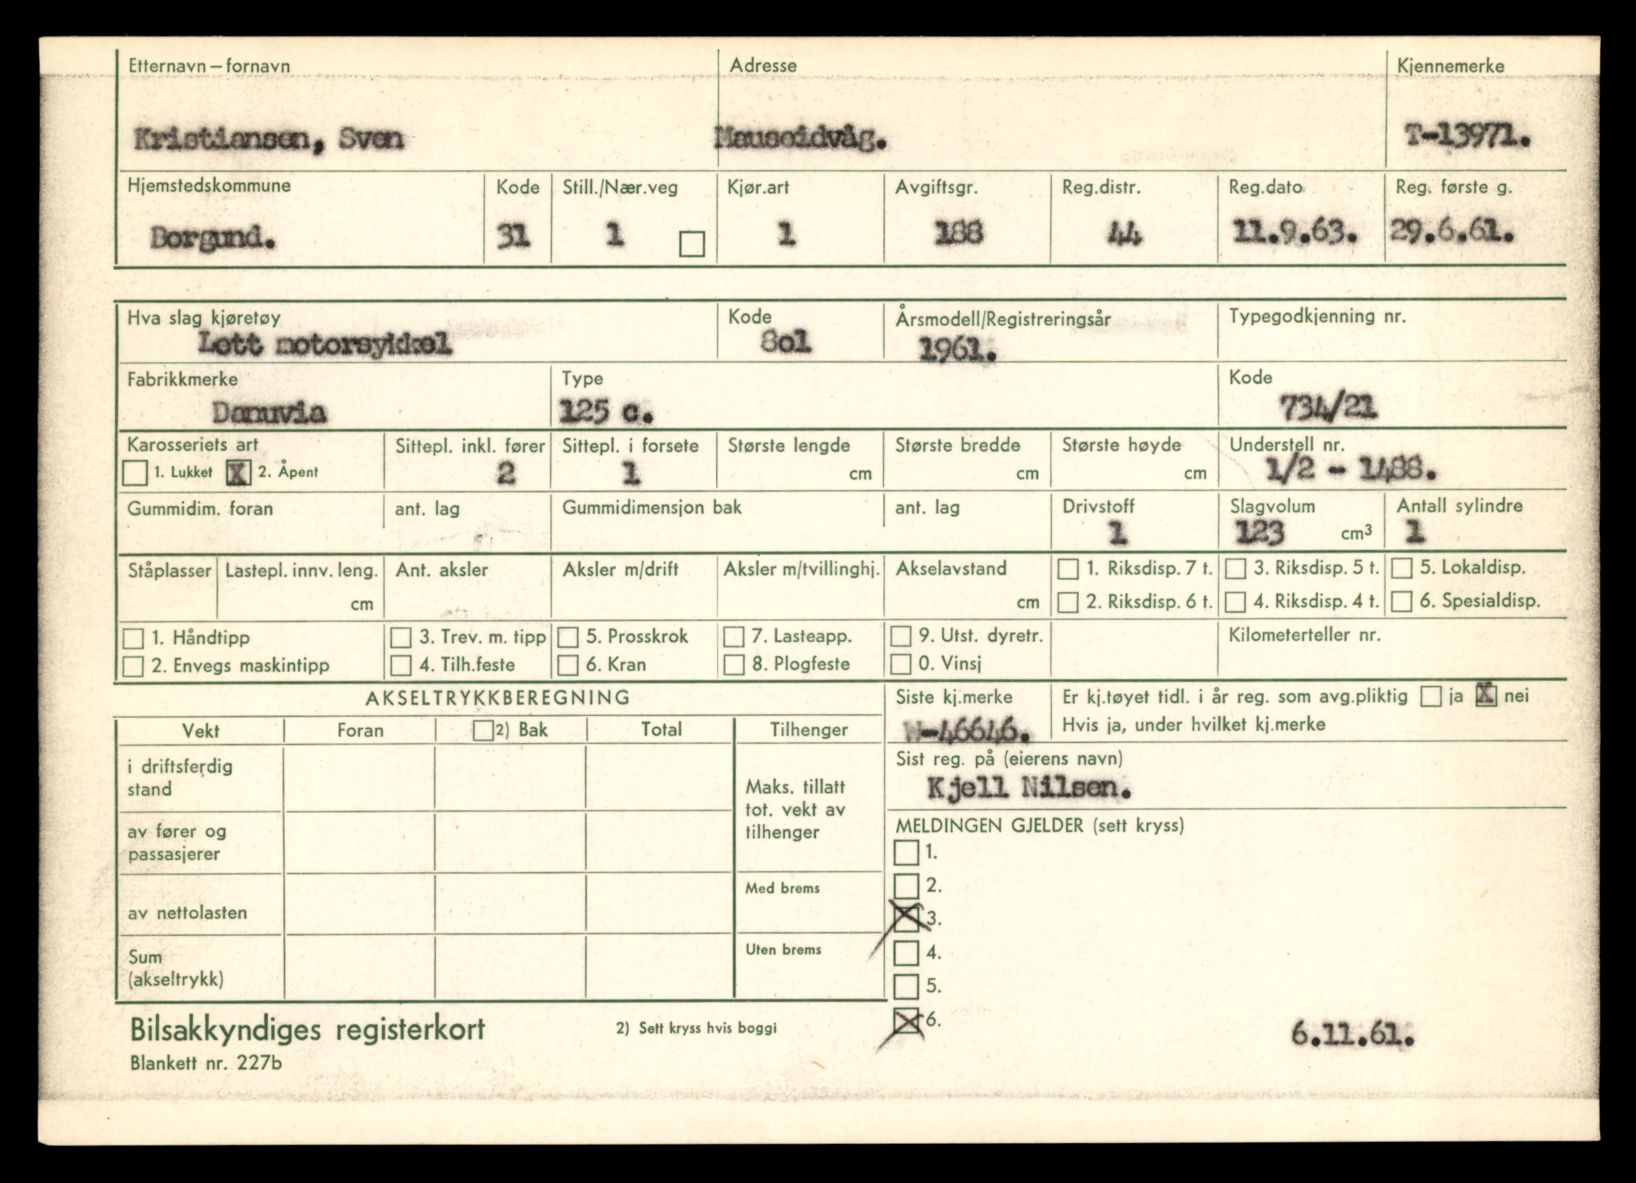 Etternavn – fornavn Adresse Kjennemerke
Kristiansen, Sven Mauseidvåg. T-13971.
Hjemstedskommune Kode Still./Nær.veg Kjør.art Avgiftsgr. Reg.distr. Reg.dato Reg. første g.
Borgund. 31 1 1 188 44 11.9.63. 29.6.61.
Hva slag kjøretøy Kode Årsmodell/Registreringsår Typegodkjenning nr.
Lett motorsykkel 8o1 1961.
Fabrikkmerke Type Kode
Danuvia 125 c. 734/21
Karosseriets art Sittepl. inkl. fører Sittepl. i forsete Største lengde Største bredde Største høyde Understell nr.
1. Lukket X 2. Åpent 2 1 cm cm cm 1/2 - 1488.
Gummidim. foran ant. lag Gummidimensjon bak ant. lag Drivstoff Slagvolum Antall sylindre
1 123 cm³ 1
Ståplasser Lastepl. innv. leng. Ant. aksler Aksler m/drift Aksler m/tvillinghj. Akselavstand 1. Riksdisp. 7 t. 3. Riksdisp. 5 t. 5. Lokaldisp.
cm cm 2. Riksdisp. 6 t. 4. Riksdisp. 4 t. 6. Spesialdisp.
1. Håndtipp 3. Trev. m. tipp 5. Prosskrok 7. Lasteapp. 9. Utst. dyretr. Kilometerteller nr.
2. Envegs maskintipp 4. Tilh.feste 6. Kran 8. Plogfeste 0. Vinsj
AKSELTRYKKBEREGNING Siste kj.merke Er kj.tøyet tidl. i år reg. som avg.pliktig ja X nei
Vekt Foran 2) Bak Total Tilhenger -46646. Hvis ja, under hvilket kj.merke
i driftsferdig stand
Maks. tillatt tot. vekt av tilhenger
Sist reg. på (eierens navn)
Kjell Nilsen.
av fører og passasjerer
MELDINGEN GJELDER (sett kryss)
1.
Med brems 2.
av nettolasten X 3.
Uten brems 4.
Sum (akseltrykk) 5.
X 6.
Bilsakkyndiges registerkort 2) Sett kryss hvis boggi 6.11.61.
Blankett nr. 227b